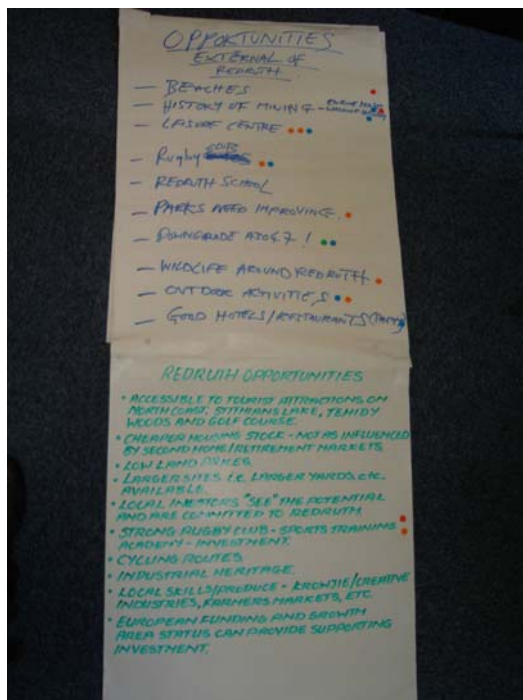 OPPORTUNITIES
EXTERNAL OF
REDRUTH
— BEACHES
— HISTORY OF MINING -
— LEISURE CENTRE
— Rugby
— REDRUTH SCHOOL
— PARKS NEED IMPROVING.
— DOWNGRADE A3047!
— WILDLIFE AROUND REDRUTH
— OUTDOOR ACTIVITIES
— GOOD HOTELS/RESTAURANTS
REDRUTH OPPORTUNITIES
• ACCESSIBLE TO TOURIST ATTRACTIONS ON
NORTH COAST, STITHIANS LAKE, TEHIDY
WOODS AND GOLF COURSE.
• CHEAPER HOUSING STOCK - NOT AS INFLUENCED
BY SECOND HOME/RETIREMENT MARKETS
• LOW LAND PRICES.
• LARGER SITES i.e. LARGER YARDS etc.
AVAILABLE.
• LOCAL INVESTORS "SEE" THE POTENTIAL
AND ARE COMMITTED TO REDRUTH
• STRONG RUGBY CLUB - SPORTS TRAINING
ACADEMY - INVESTMENT.
• CYCLING ROUTES
• INDUSTRIAL HERITAGE.
• LOCAL SKILLS/PRODUCE - KROWJIE/CREATIVE
INDUSTRIES, FARMERS MARKETS, ETC.
• EUROPEAN FUNDING AND GROWTH
AREA STATUS CAN PROVIDE SUPPORTING
INVESTMENT.